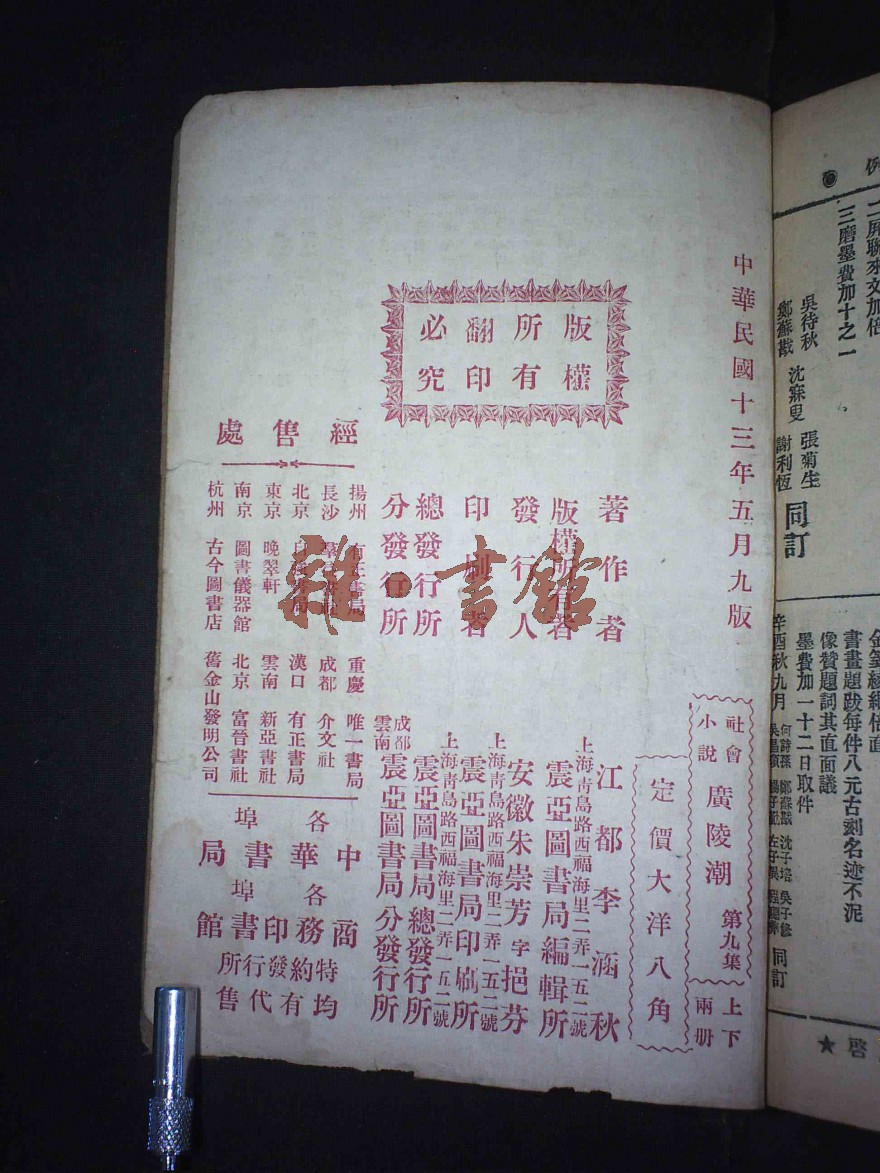 中華民國十三年五月九版
版權
所有
翻印
必究
社會
小說
廣陵潮
第九集
上下
兩册
定價大洋八角
著作者
江都李涵秋
版權所有者
上海靑島路西福海里二弄一五二號
震亞圖書局編輯所
發行人
安徽朱崇芳字挹芬
印刷者
上海靑島路西福海里二弄一五二號
震亞圖書局印刷所
總發行所
上海靑島路西福海里二弄一五二號
震亞圖書局總發行所
分發行所
成都
雲南
震亞圖書局分發行所
經售處
揚州 有正書局
重慶 唯一書局
長沙
成都 介文社
北京
漢口 有正書局
東京 晚翠軒
雲南 新亞書社
南京 圖書儀器館
北京 富晉書社
杭州 古今圖書店
舊金山發明公司
各埠
中華書局
各埠
商務印書館
特約發行所
均有代售
例
二屏聯來文加倍
三磨墨費加十之一
吳待秋
鄭蘇戡
沈寐叟
張菊生
謝利恆
同訂
書畫題跋每件八元古刻名迹不泥
像贊題詞其直面議
墨費加一十二日取件
辛酉秋九月
何詩孫
鄭蘇戡
沈子培
同訂
啓
★
雜·書館